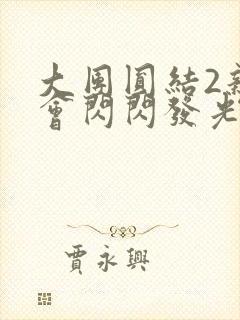 大團圓結2新
會閃閃發光
賈永興